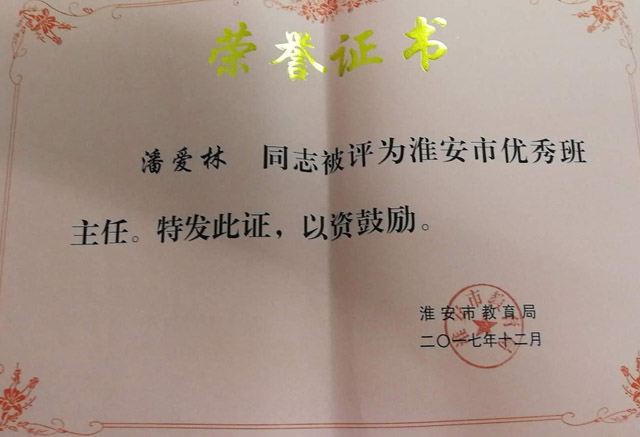 荣誉证书
潘爱林 同志被评为淮安市优秀班
主任。特发此证，以资鼓励。
淮安市教育局
二〇一七年十二月